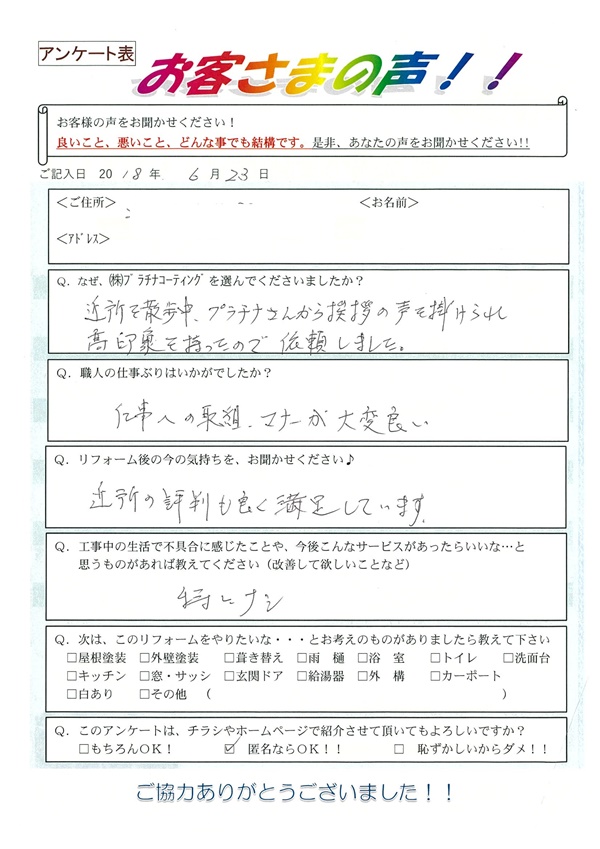 アンケート表
お客さまの声！！
お客様の声をお聞かせください！
良いこと、悪いこと、どんな事でも結構です。是非、あなたの声をお聞かせください!!
ご記入日 2018年 6月23日
＜ご住所＞ ＜お名前＞
＜ｱﾄﾞﾚｽ＞
Q．なぜ、㈱ﾌﾟﾗﾁﾅｺｰﾃｨﾝｸﾞを選んでくださいましたか？
近所を散歩中、プラチナさんから挨拶の声を掛けられ
高印象を持ったので依頼しました。
Q．職人の仕事ぶりはいかがでしたか？
仕事への取組、マナーが大変良い
Q．リフォーム後の今の気持ちを、お聞かせください♪
近所の評判も良く満足しています。
Q．工事中の生活で不具合に感じたことや、今後こんなサービスがあったらいいな…と
思うものがあれば教えてください（改善して欲しいことなど）
特にナシ
Q．次は、このリフォームをやりたいな・・・とお考えのものがありましたら教えて下さい
□屋根塗装 □外壁塗装 □葺き替え □雨 樋 □浴 室 □トイレ □洗面台
□キッチン □窓・サッシ □玄関ドア □給湯器 □外 構 □カーポート
□白あり □その他 （ ）
Q．このアンケートは、チラシやホームページで紹介させて頂いてもよろしいですか？
□もちろんOK！ ☑ 匿名ならOK！！ □ 恥ずかしいからダメ！！
ご協力ありがとうございました！！